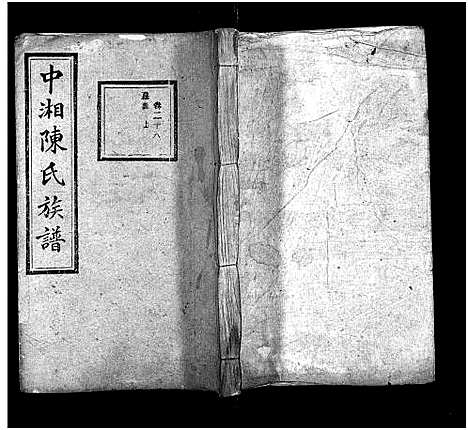 中湘陳氏族譜
卷二十八
上